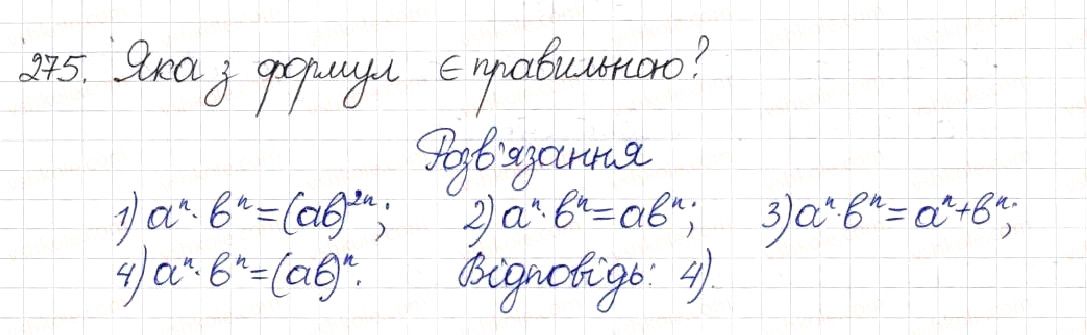 275. Яка з формул є правильною?
Розв'язання
1) aⁿ · bⁿ = (ab)²ⁿ; 2) aⁿ · bⁿ = abⁿ; 3) aⁿ · bⁿ = aⁿ + bⁿ;
4) aⁿ · bⁿ = (ab)ⁿ. Відповідь: 4).